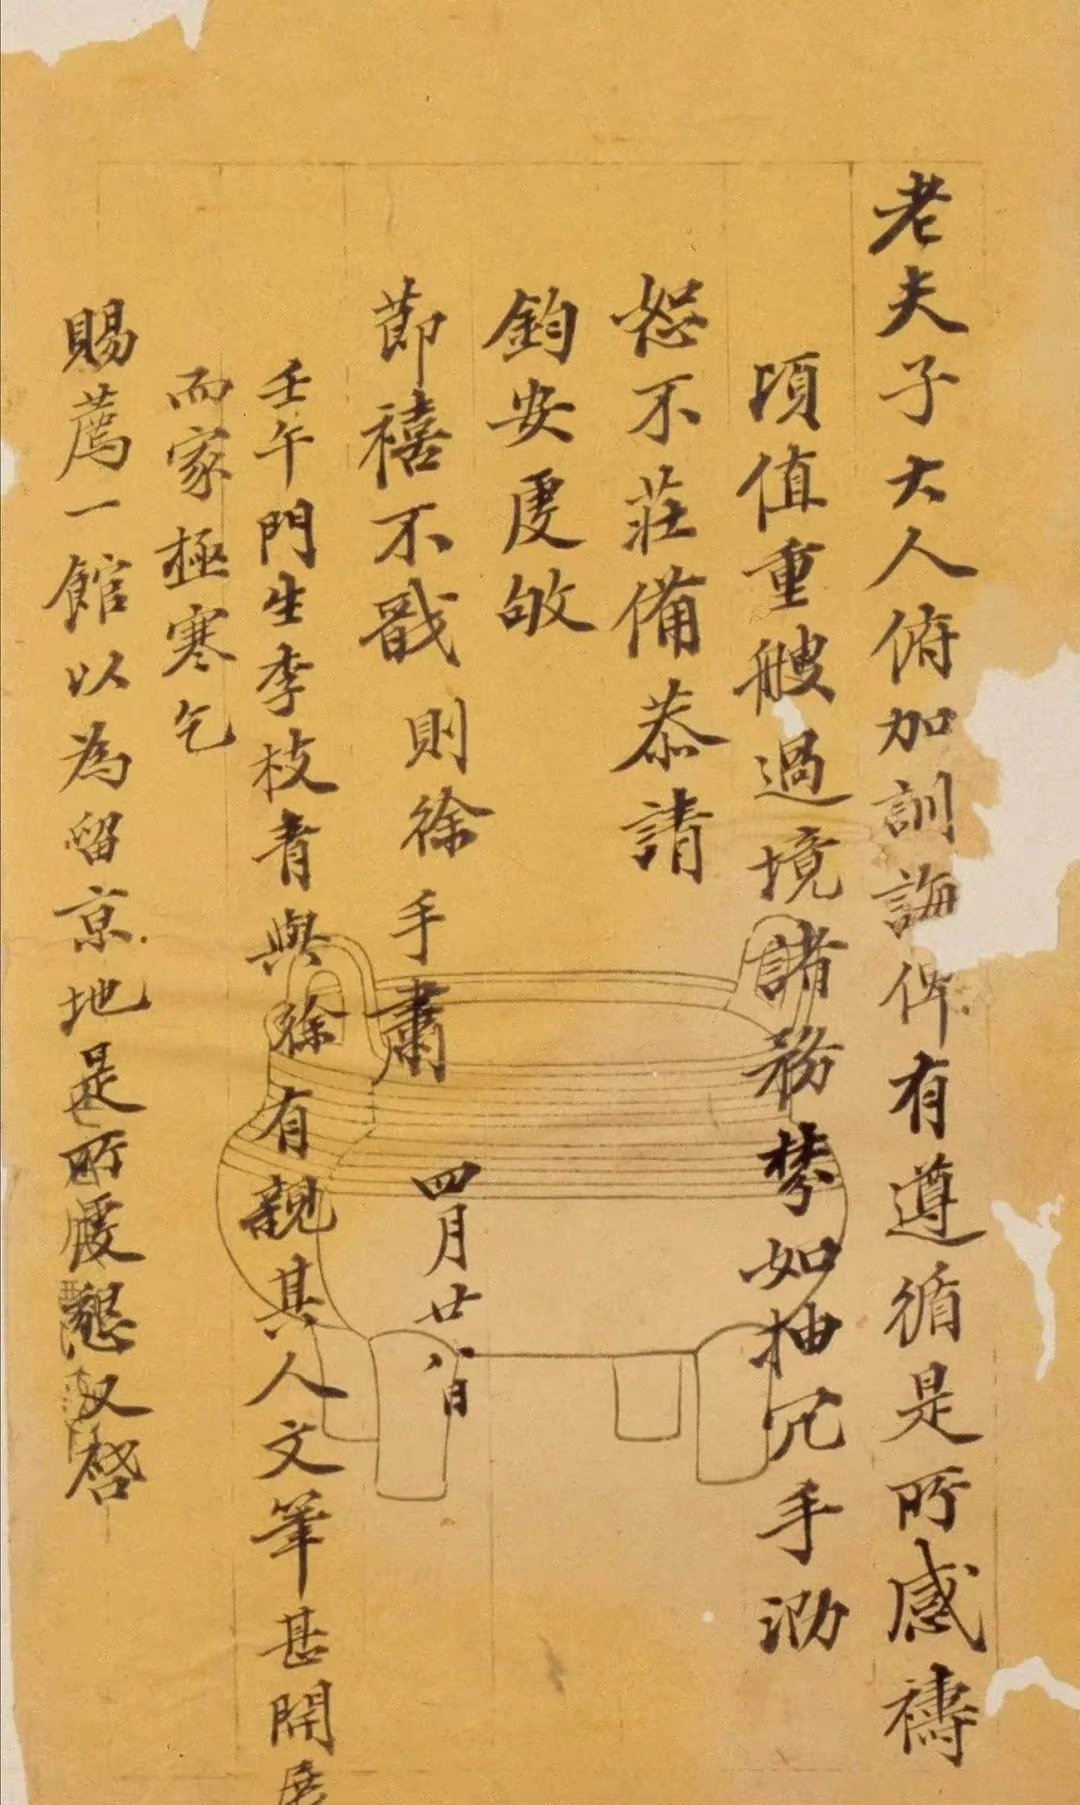 老夫子大人俯加訓誨俾有遵循是所感禱
頃值重艘過境諸務棼如抽冗手泐
恕不莊備恭請
鈞安虔敂
節禧不戬則徐手肅 四月廿八日
壬午門生李枝青與徐有親其人文筆甚開展
而家極寒乞
賜薦一館以為留京地是所虔懇又啓